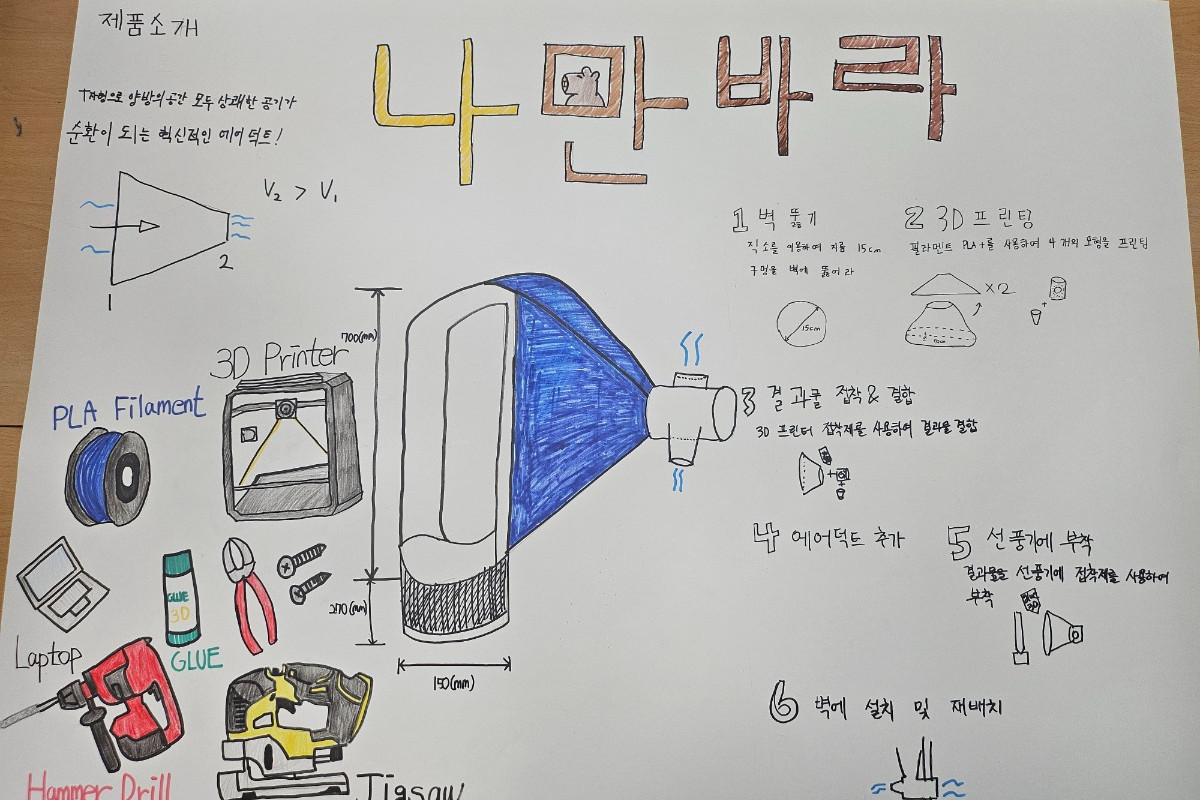 제품소개
나만바라
T자형으로 양방의 공간 모두 상쾌한 공기가
순환이 되는 혁신적인 에어덕트!
V₂ > V₁
1
2
1 벽 뚫기
직소를 이용하여 지름 15cm
구멍을 벽에 뚫어라
15cm
2 3D 프린팅
필라멘트 PLA+를 사용하여 4개의 모형을 프린팅
×2
+
3 결과물 접착 & 결합
3D 프린터 접착제를 사용하여 결과물 결합
+
+
4 에어덕트 추가
5 선풍기에 부착
결과물을 선풍기에 접착제를 사용하여
부착
6 벽에 설치 및 재배치
700(mm)
270(mm)
150(mm)
3D Printer
PLA Filament
Laptop
GLUE
3D
GLUE
Hammer Drill
Jigsaw